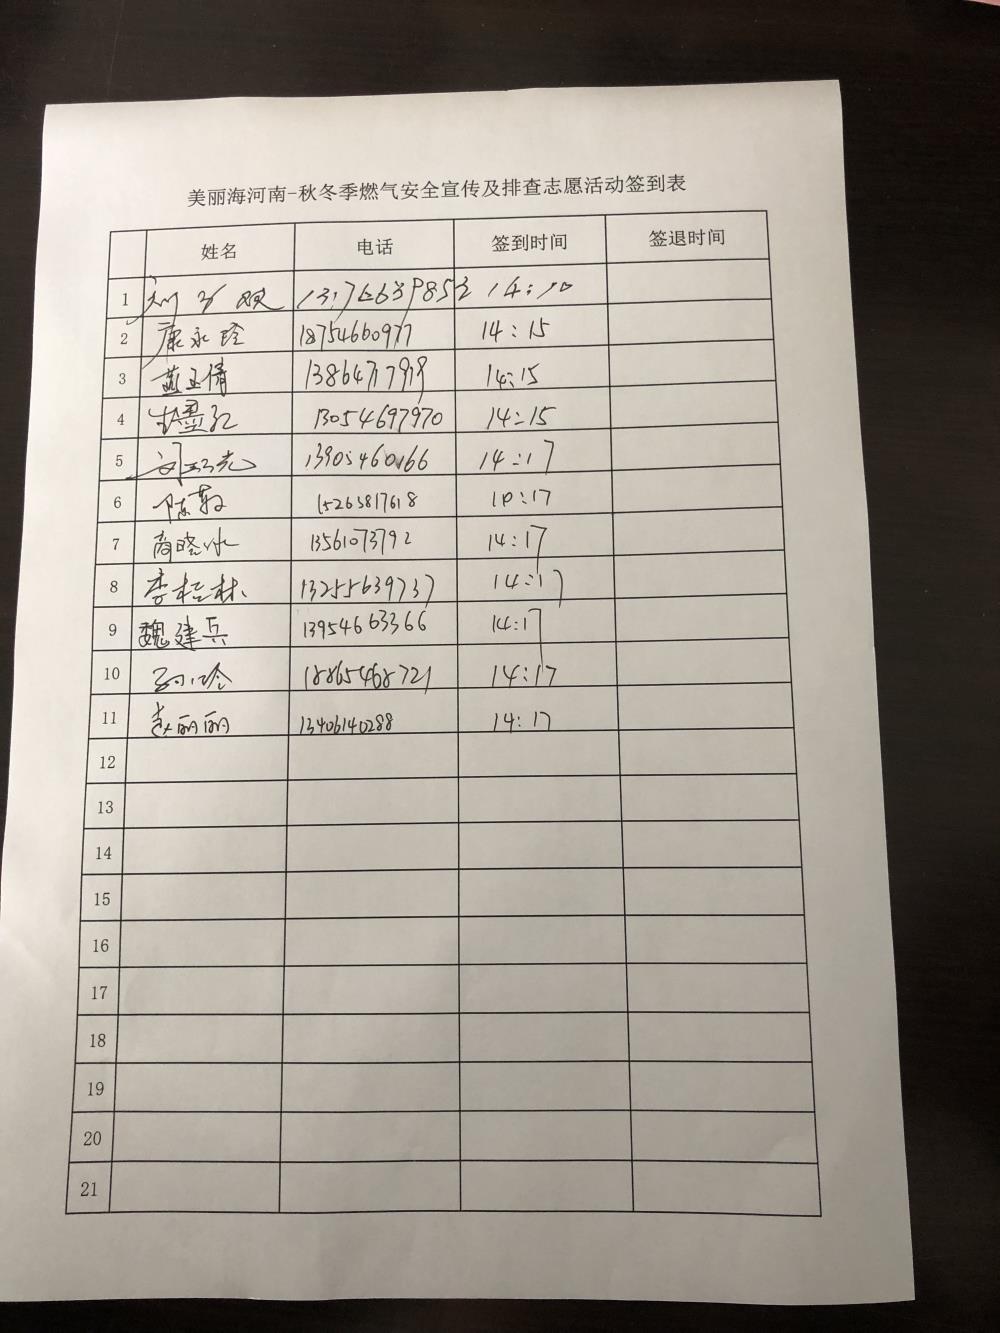 美丽海河南-秋冬季燃气安全宣传及排查志愿活动签到表
姓名 电话 签到时间 签退时间
1 14:10
2 康永玲 18754660977 14:15
3 13864717918 14:15
4 13054697970 14:15
5 13905460166 14:17
6 陈敏 15263817618 10:17
7 商晓冰 13561073792 14:17
8 李桂林 13255639737 14:17
9 魏建兵 13954663366 14:17
10 18865468721 14:17
11 赵丽丽 13406140288 14:17
12
13
14
15
16
17
18
19
20
21